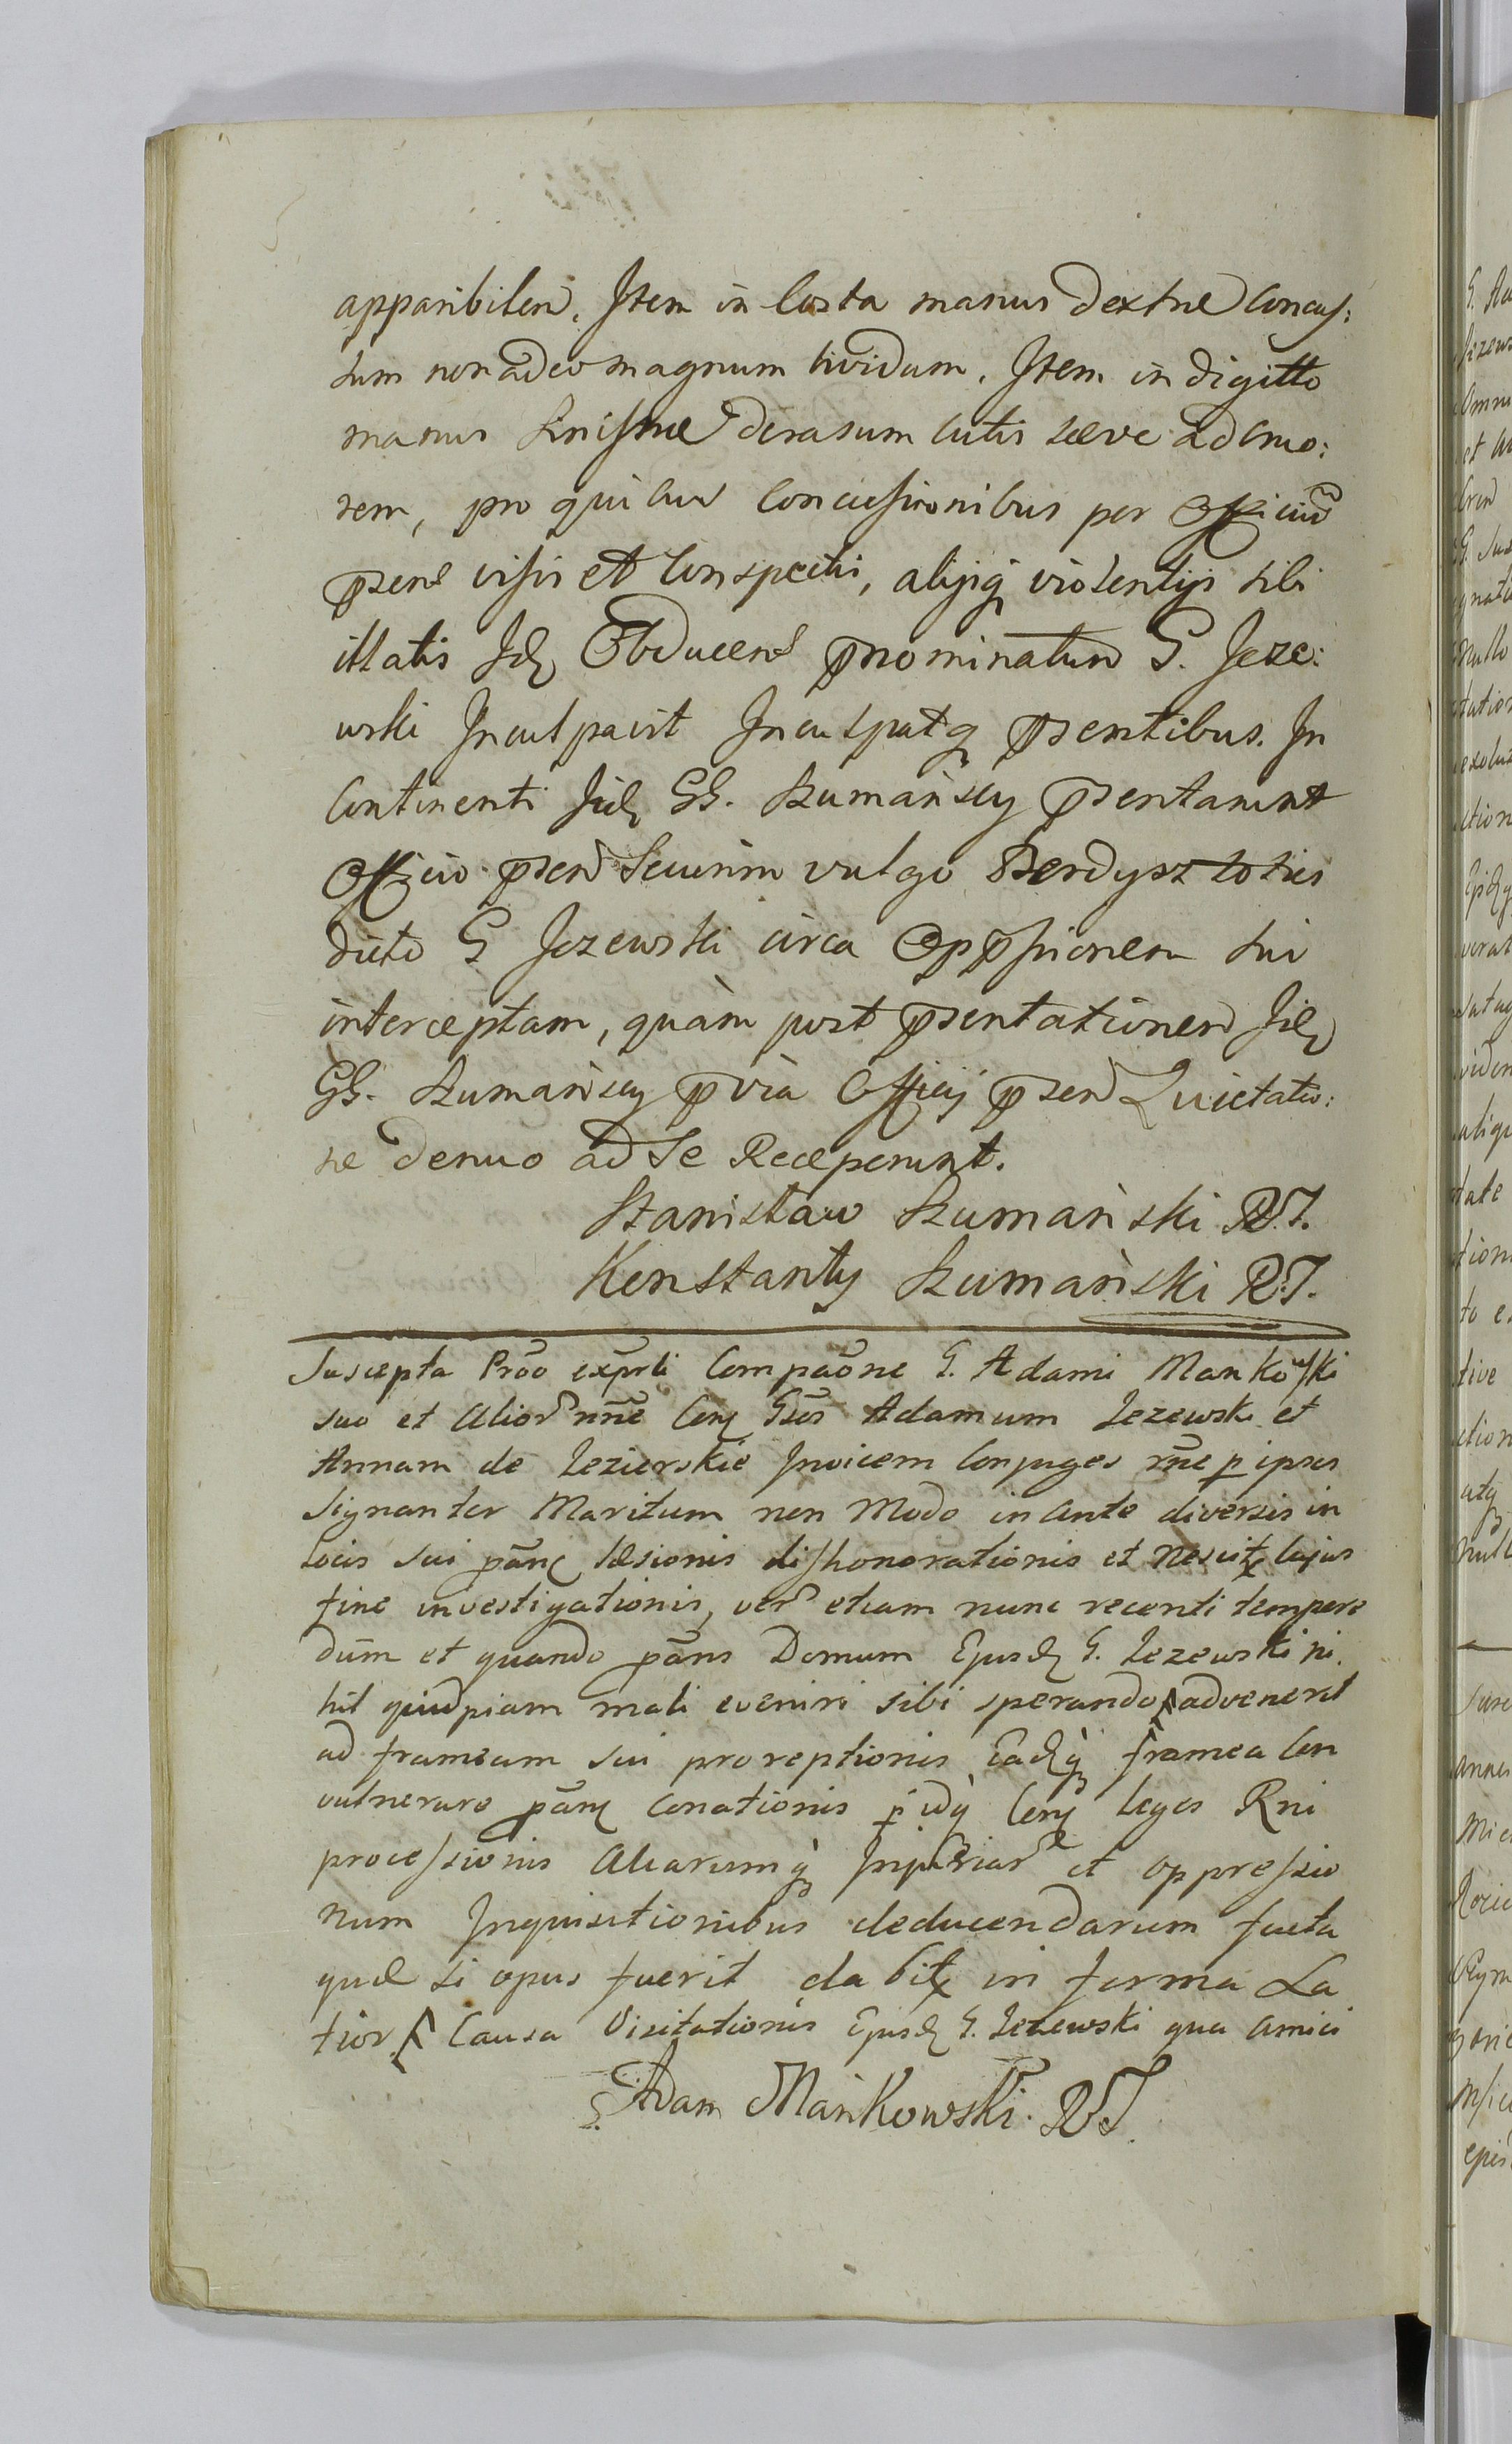 apparibilem. Item in Costa manus dextrae Concus:
sum non adeo magnum lividum. Item in digitto
manus Sinistrae derasum cutis saeve ad cruo:
rem, pro quibus Concussionibus per Officiũ
pñs visis et Conspectis, alijsq violentijs sibi
illatis Jd Obducens pnominatum G. Jeze:
wski Inculpavit Inculpatq psentibus. In
Continenti Jid GG. Szumańscy psentarunt
Officio psen Securim vulgo Berdysz toties
dicto G Jezewski circa Oppssionem sui
interceptam, quàm post psentationem Jid
GG. Szumańscy pvia Officij psen Quietatio:
ne denuo ad Se Receperunt.
Stanisław Szumański R.T.
Konstanty Szumański R.T.
Suscepta Prõo exprli Compaõne G. Adami Mankowski
suo et Alior nñe Con Gsos Adamum Jezewski et
Annam de Jezierskie Invicem Conjuges rñe p ipsos
Signanter Maritum non Modo in ante diversis in
locis sui pãn laesionis disshonorationis et nescit Cujus
fine investigationis, ver etiam nunc recenti tempore
dum et quando pãns Domum Ejusd G. Jezewski ni
hil quidpiam mali eveniri sibi sperando advenerit
ad frameam sui proreptionis Eadq framea Con
vulnerare pãn Conationis p idq Con Leges Rni
processionis Aliarumq Injuriar et oppressio
num Inquisitionibus deducendarum facta
quae si opus fuerit dabit in forma La
tior Causa Visitationis Ejusd G. Jezewski qua amici
Adam Mańkowski. R.T.